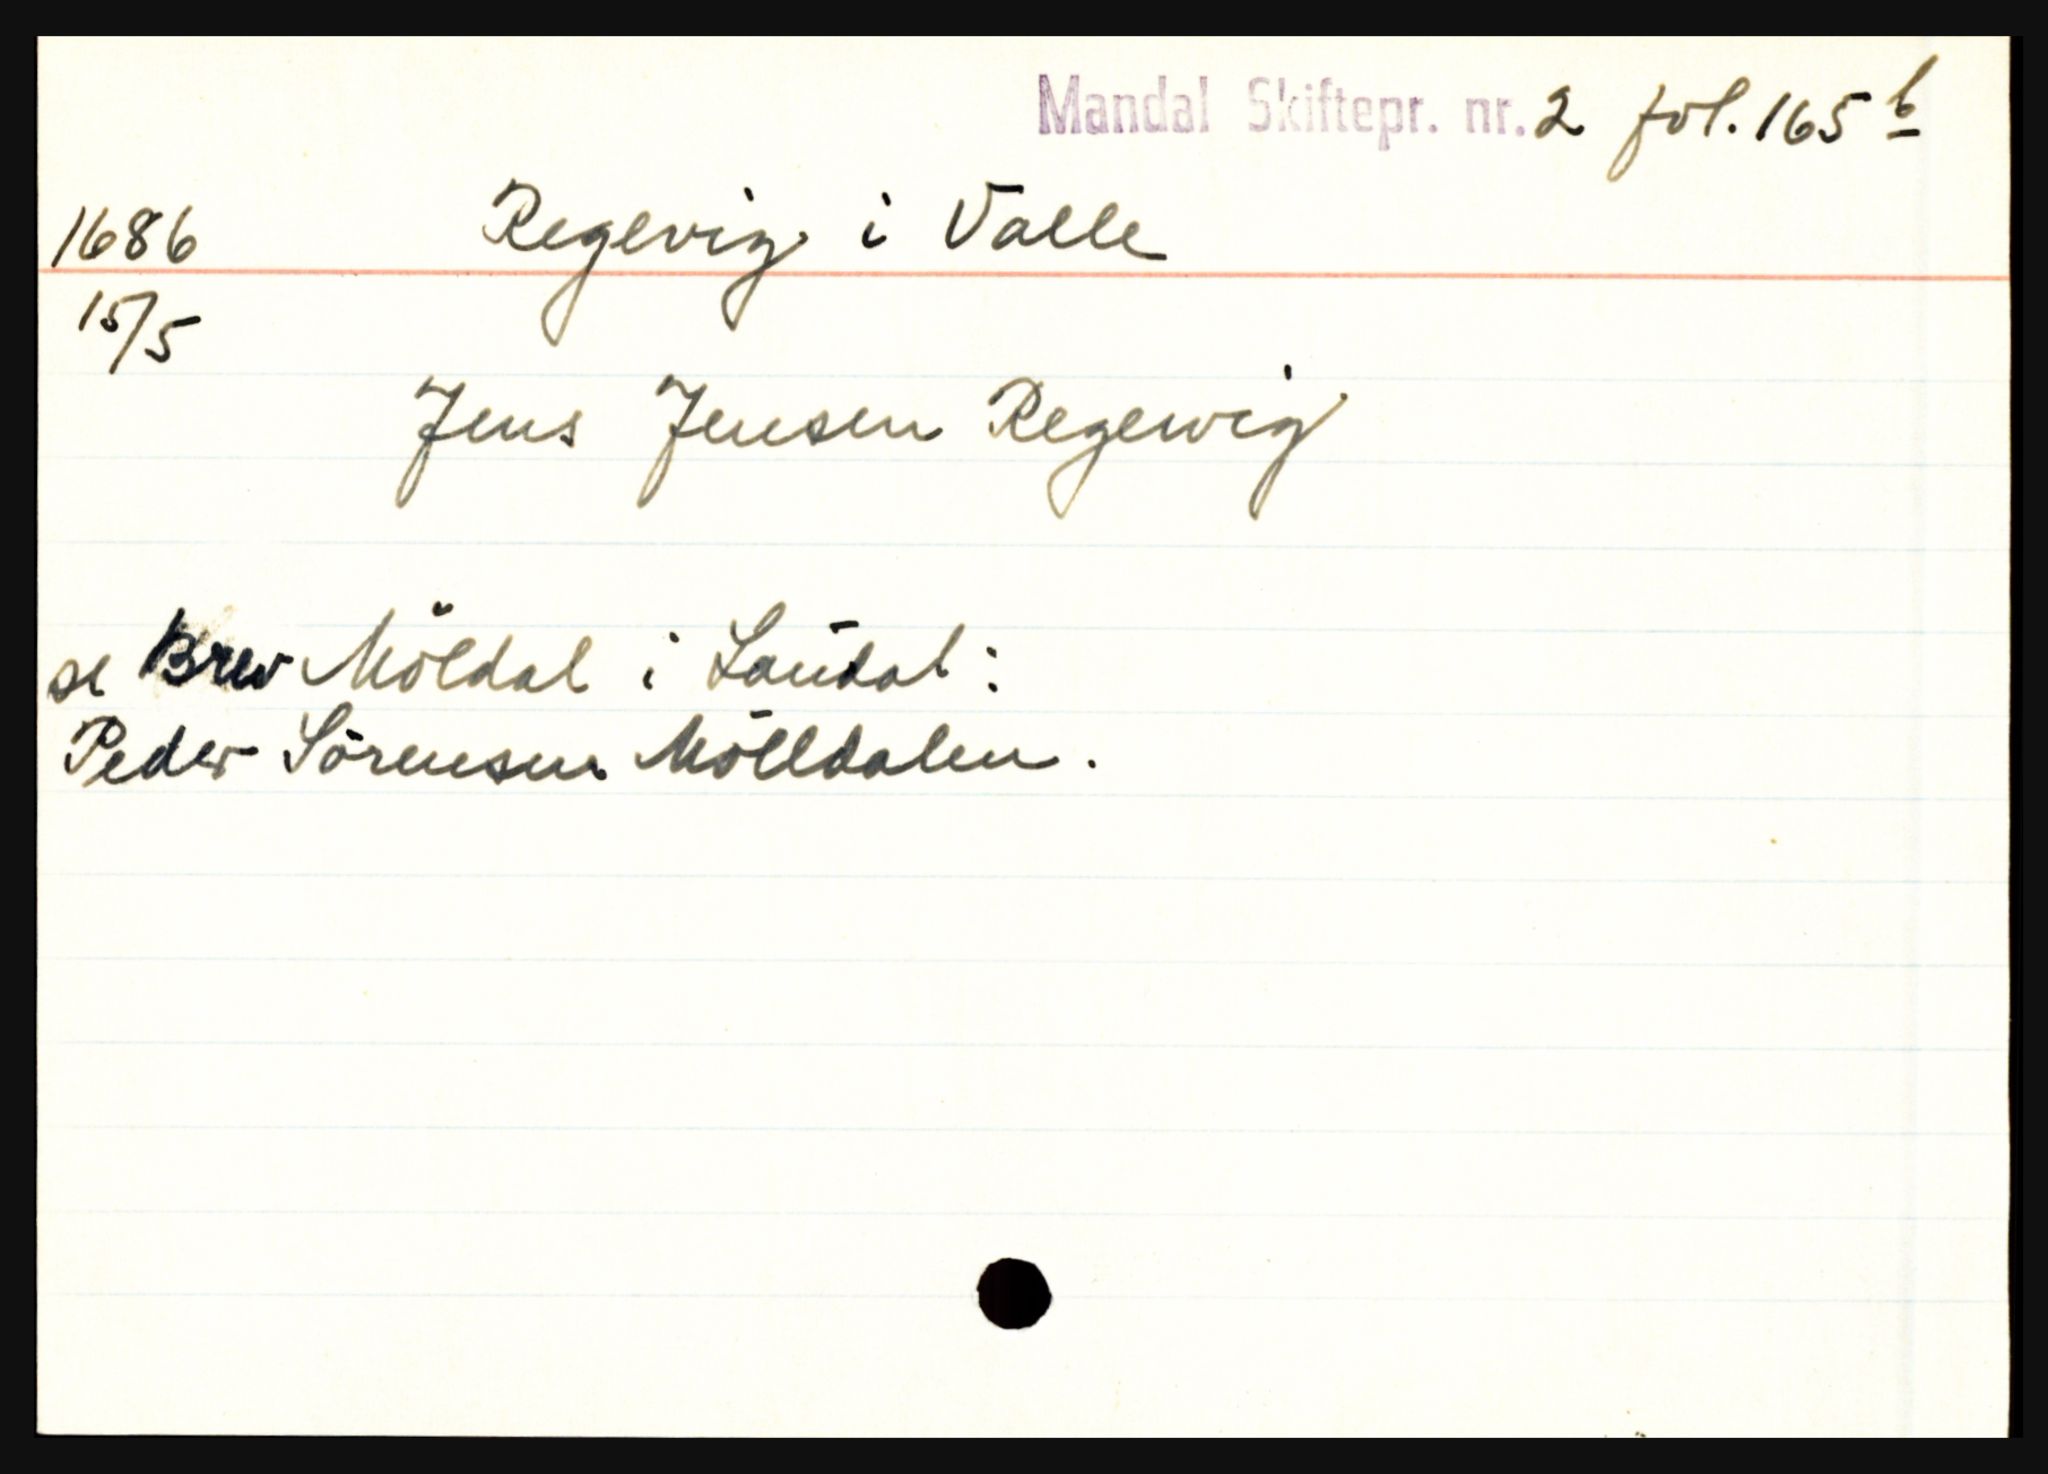 Mandal Skiftepr. nr. 2 fol. 165 b
1686 Regevig i Valle
15/5
Jens Jensen Regewig
se Brev Möldal i Laudal:
Peder Sörensen Mölldalen.